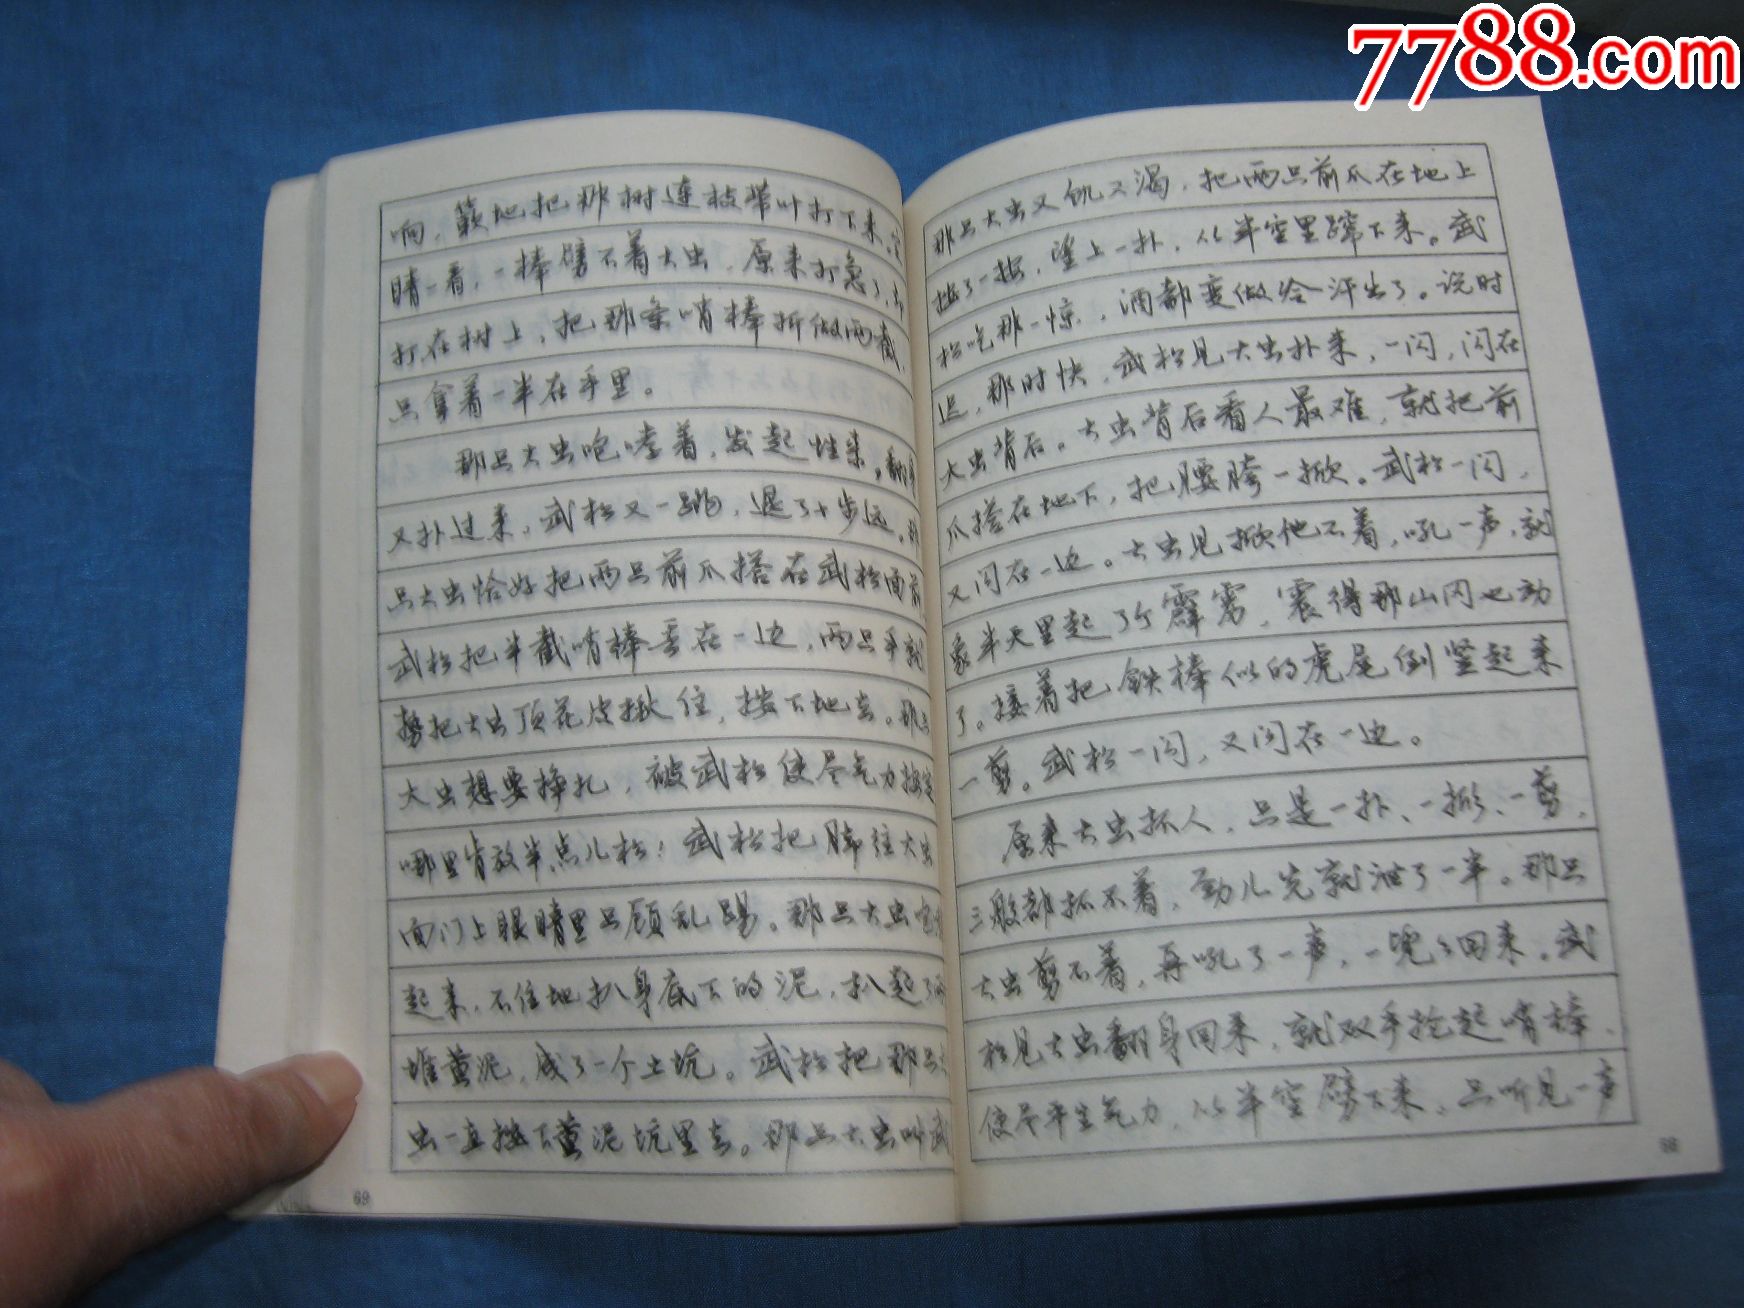 7788.com
那只大虫又饥又渴，把两只前爪在地上
按了一按，望上一扑，从半空里蹿下来。武
松吃那一惊，酒都变做冷汗出了。说时
迟，那时快，武松见大虫扑来，一闪，闪在
大虫背后。大虫背后看人最难，就把前
爪搭在地下，把腰胯一掀。武松一闪，
又闪在一边。大虫见掀他不着，吼一声，就
象半天里起了个霹雳，震得那山冈也动
了。接着把铁棒似的虎尾倒竖起来
一剪。武松一闪，又闪在一边。
原来大虫抓人，只是一扑、一掀、一剪，
三般都抓不着，劲儿先就泄了一半。那只
大虫剪不着，再吼了一声，一兜兜回来。武
松见大虫翻身回来，就双手抡起哨棒，
使尽平生气力，从半空劈下来。只听见一声
68
响，簌地把那树连枝带叶打下来。定
睛一看，一棒劈不着大虫，原来打急了，却
打在树上，把那条哨棒折做两截，
只拿着一半在手里。
那只大虫咆哮着，发起性来。翻身
又扑过来，武松又一跳，退了十步远。那
只大虫恰好把两只前爪搭在武松面前
武松把半截哨棒丢在一边，两只手就
势把大虫顶花皮揪住，按下地去。那只
大虫想要挣扎，被武松使尽气力按定
哪里肯放半点儿松！武松把脚往大虫
面门上眼睛里只顾乱踢。那只大虫咆哮
起来，不住地扒身底下的泥，扒起了两
堆黄泥，成了一个土坑。武松把那只大
虫一直按下黄泥坑里去。那只大虫叫武
69